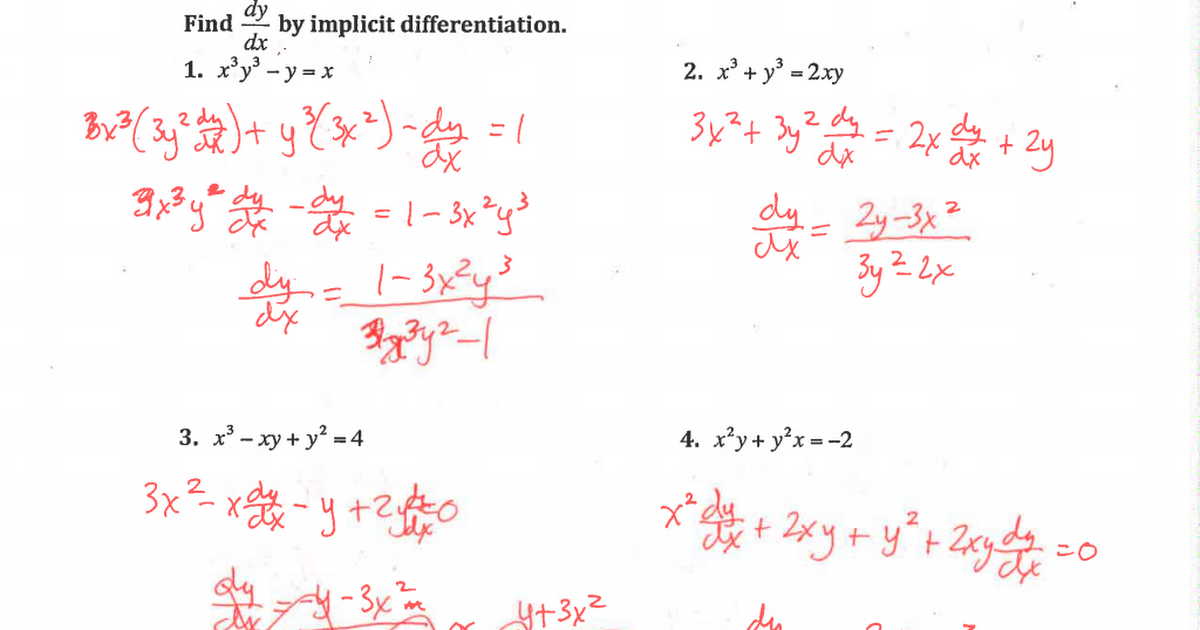 Find dy/dx by implicit differentiation.
1. x³y³ – y = x
3x³(3y² dy/dx) + y³(3x²) - dy/dx = 1
3x³y² dy/dx - dy/dx = 1 - 3x²y³
dy/dx = (1 - 3x²y³)/(3x³y² - 1)
2. x³ + y³ = 2xy
3x² + 3y² dy/dx = 2x dy/dx + 2y
dy/dx = (2y - 3x²)/(3y² - 2x)
3. x³ – xy + y² = 4
3x² - x dy/dx - y + 2y dy/dx = 0
dy/dx = y - 3x²
y + 3x²
4. x²y + y²x = –2
x² dy/dx + 2xy + y² + 2xy dy/dx = 0
dy